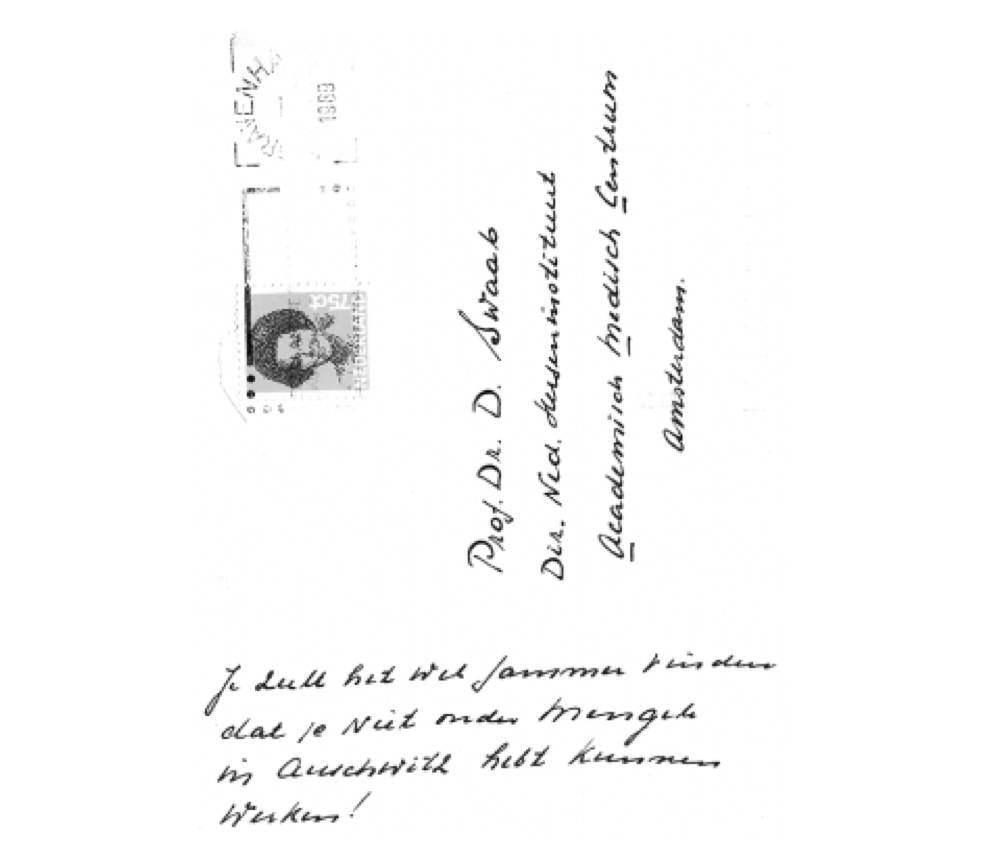 RAVENH
1989
75ct
NEDERLAND
Prof. Dr. D. Swaab
Dir. Ned. Herseninstituut
Academisch Medisch Centrum
Amsterdam.
Je zult het wel jammer vinden
dat je Niet onder Mengele
in Auschwitz hebt kunnen
Werken!